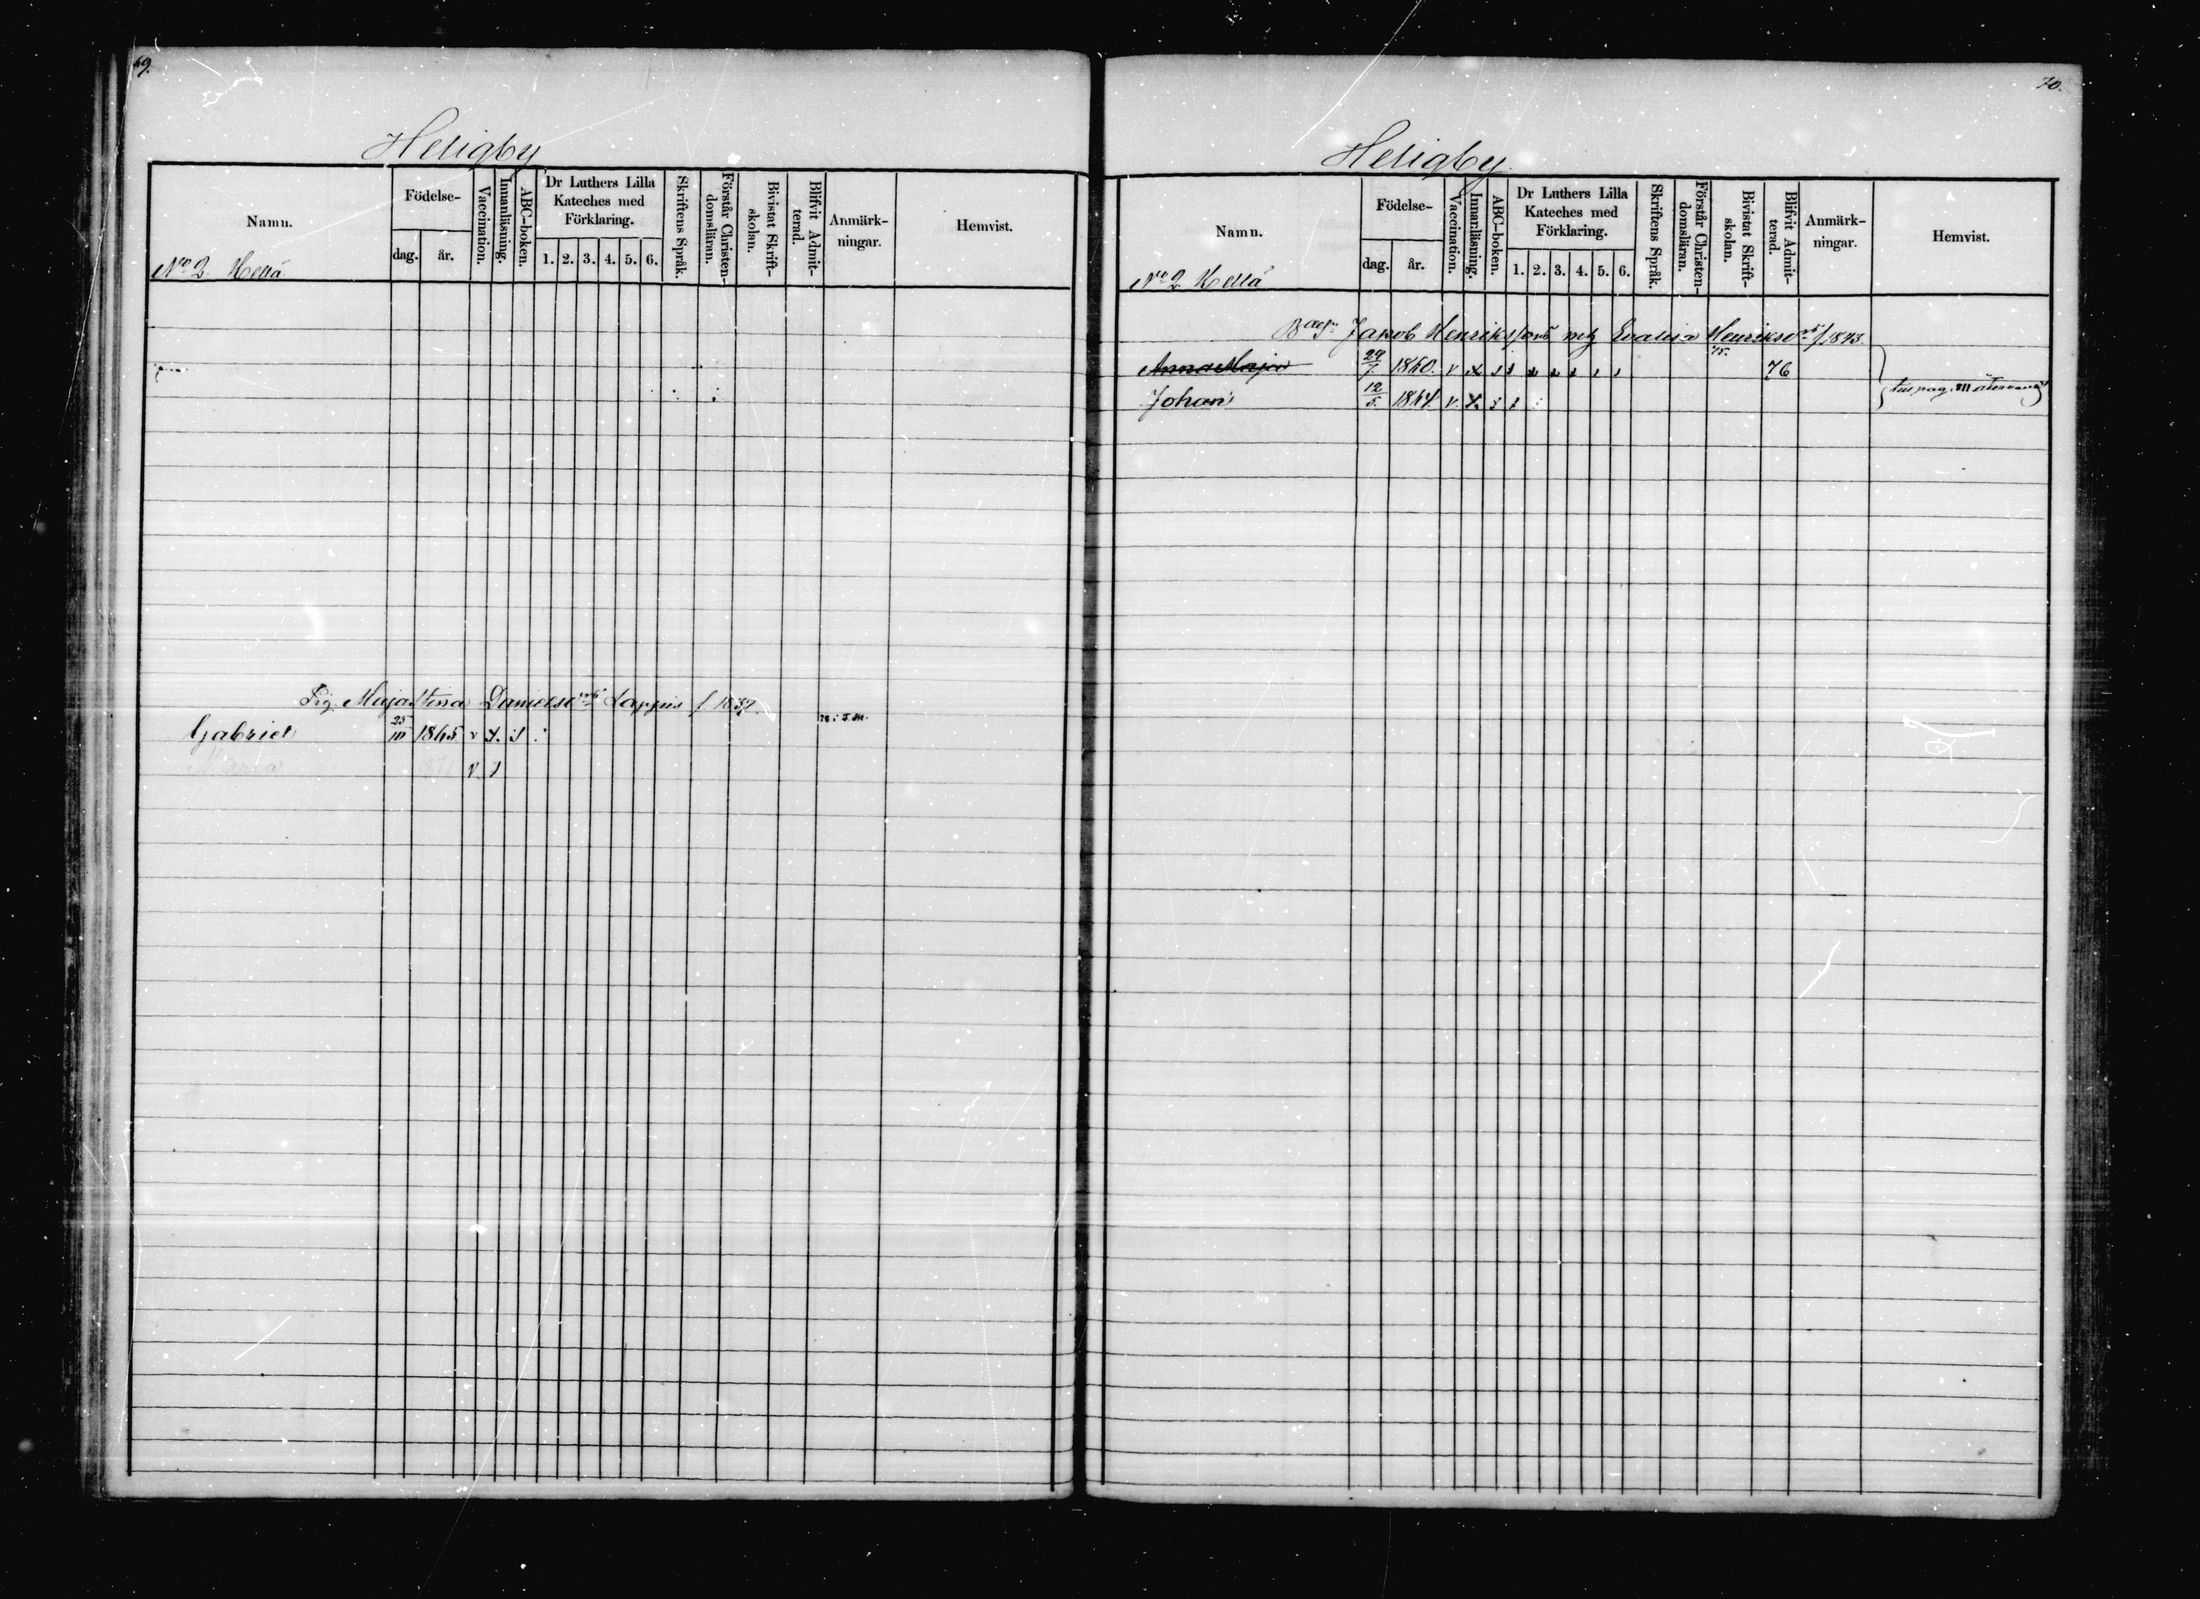 69.
Heligby
Namn.
Födelse-
dag.
år.
Vaccination.
Innanläsning.
ABC-boken.
Dr Luthers Lilla
Kateches med
Förklaring.
1. 2. 3. 4. 5. 6.
Skriftens Språk.
Förstår Christen-
domsläran.
Bivistat Skrift-
skolan.
Blifvit Admit-
terad.
Anmärk-
ningar.
Hemvist.
No 2
Majastina Daniels Lappis f. 1839.
Gabriel 25/III 1865 v
Maria v
70.
Heligby
Namn.
Födelse-
dag.
år.
Vaccination.
Innanläsning.
ABC-boken.
Dr Luthers Lilla
Kateches med
Förklaring.
1. 2. 3. 4. 5. 6.
Skriftens Språk.
Förstår Christen-
domsläran.
Bivistat Skrift-
skolan.
Blifvit Admit-
terad.
Anmärk-
ningar.
Hemvist.
No 2
Jakob Henrikssons Henriksd f 1843.
Anna Maja 1860. v 75. 76
Johan 12/5 1864 v